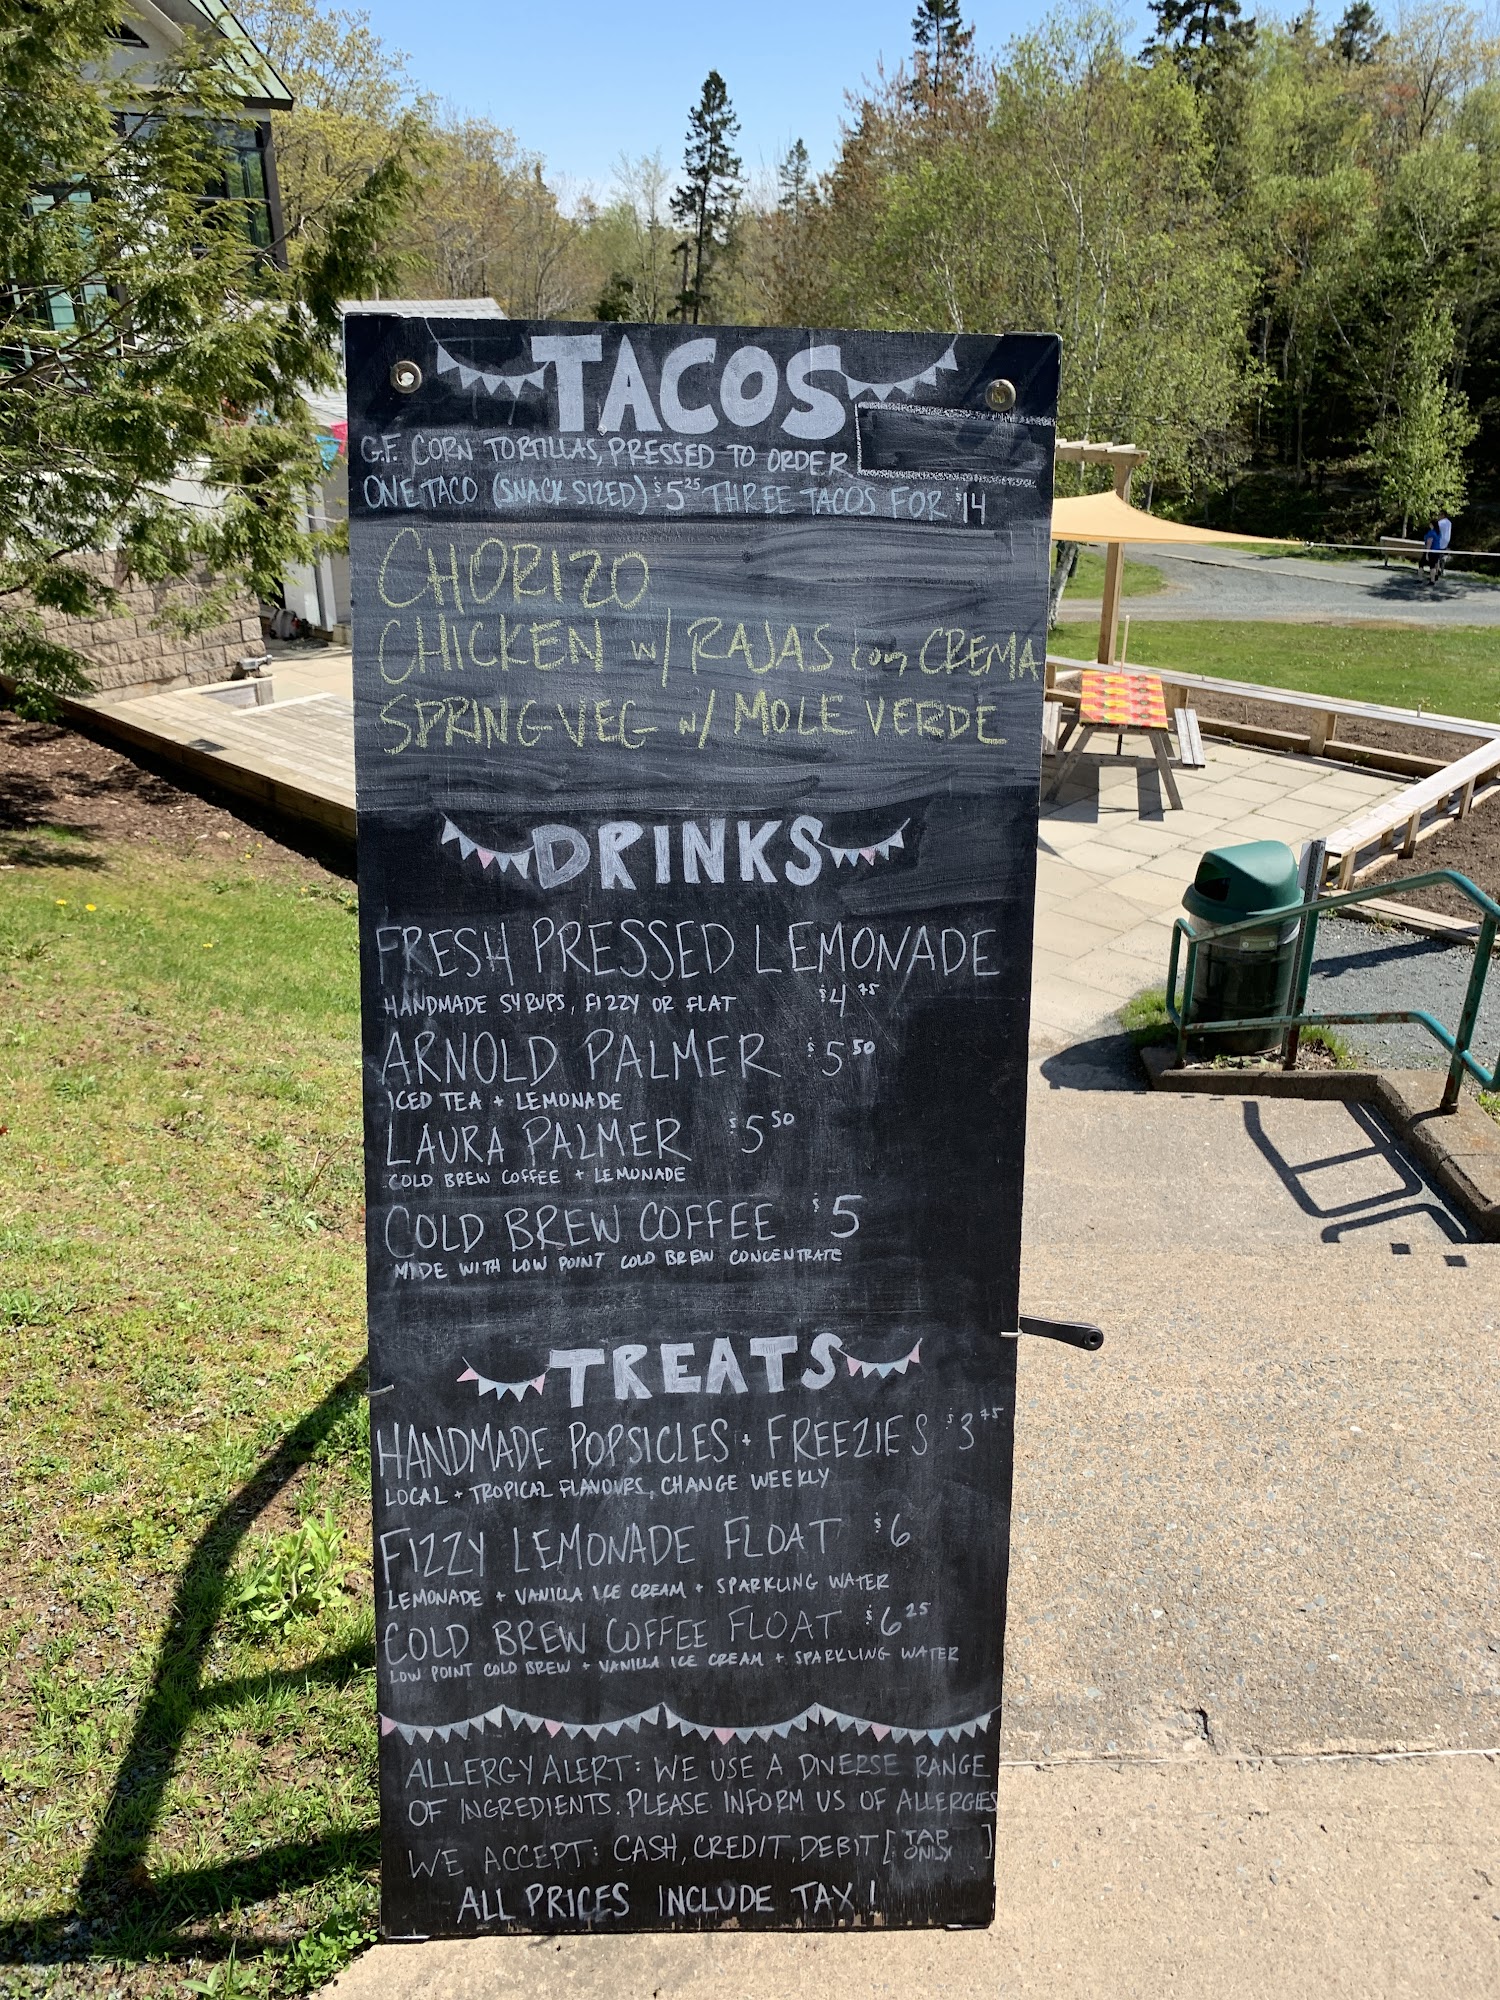 TACOS
G.F. CORN TORTILLAS, PRESSED TO ORDER
ONE TACO (SNACK SIZED) $5.25 THREE TACOS FOR $14
CHORIZO
CHICKEN w/ RAJAS con CREMA
SPRING VEG w/ MOLE VERDE
DRINKS
FRESH PRESSED LEMONADE
HANDMADE SYRUPS, FIZZY OR FLAT $4.75
ARNOLD PALMER $5.50
ICED TEA + LEMONADE
LAURA PALMER $5.50
COLD BREW COFFEE + LEMONADE
COLD BREW COFFEE $5
MADE WITH LOW POINT COLD BREW CONCENTRATE
TREATS
HANDMADE POPSICLES + FREEZIES $3.75
LOCAL + TROPICAL FLAVOURS, CHANGE WEEKLY
FIZZY LEMONADE FLOAT $6
LEMONADE + VANILLA ICE CREAM + SPARKLING WATER
COLD BREW COFFEE FLOAT $6.25
LOW POINT COLD BREW + VANILLA ICE CREAM + SPARKLING WATER
ALLERGY ALERT: WE USE A DIVERSE RANGE
OF INGREDIENTS. PLEASE INFORM US OF ALLERGIES
WE ACCEPT: CASH, CREDIT, DEBIT [TAP ONLY]
ALL PRICES INCLUDE TAX!